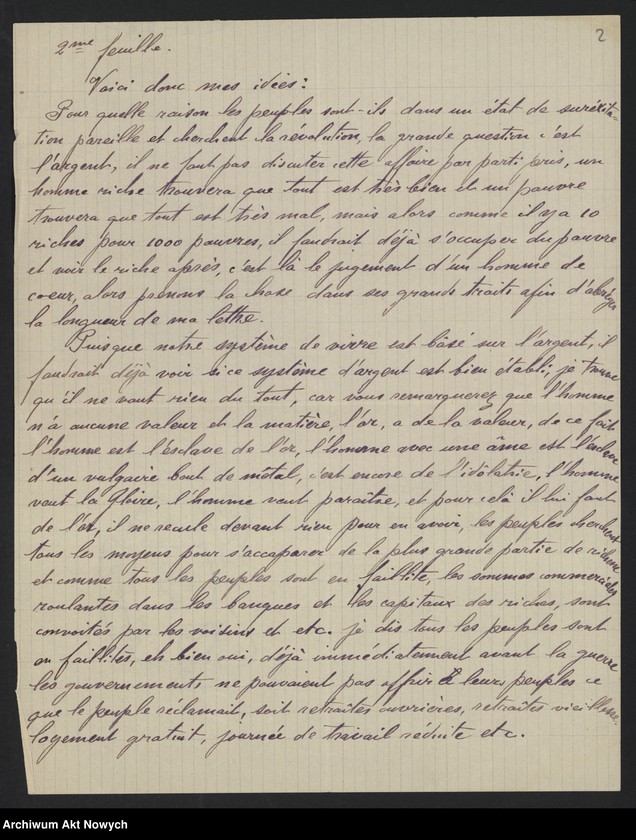 2
2me feuille.
Voici donc mes idées:
Pour quelle raison les peuples sont-ils dans un état de surèxita-
tion pareille et cherchent la révolution, la grande question c'est
l'argent, il ne faut pas discuter cette affaire par parti pris, un
homme riche trouvera que tout est très bien et un pauvre
trouvera que tout est très mal, mais alors comme il y a 10
riches pour 1000 pauvres, il faudrait déjà s'occuper du pauvre
et voir le riche après, c'est là le jugement d'un homme de
cœur, alors prenons la base dans ses grands traits afin d'abréger
la longueur de ma lettre.
Puisque notre système de vivre est bâsé sur l'argent, il
faudrait déjà voir si ce système d'argent est bien établi; je trouve
qu'il ne vaut rien du tout, car vous remarquerez que l'homme
n'a aucune valeur et la matière, l'or, a de la valeur, de ce fait
l'homme est l'esclave de l'or, l'homme avec une âme est l'esclave
d'un vulgaire bout de métal, c'est encore de l'idôlatrie, l'homme
veut la Gloire, l'homme veut paraître, et pour celà il lui faut
de l'or, il ne recule devant rien pour en avoir, les peuples cherchent
tous les moyens pour s'accaparer de la plus grande partie de richesse
et comme tous les peuples sont en faillite, les sommes commerciales
roulantes dans les banques et les capitaux des riches, sont
convoités par les voisins et etc. je dis tous les peuples sont
en faillites, eh bien oui, déjà immédiatement avant la guerre
les gouvernements ne pouvaient pas offrir à leurs peuples ce
que le peuple réclamait, soit retraites ouvrières, retraites vieillesse,
logement gratuit, journée de travail réduite etc.
Archiwum Akt Nowych